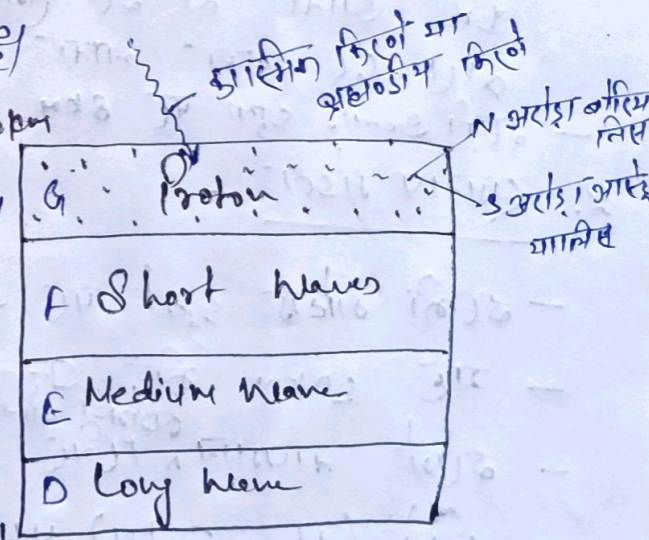 कास्मिक किरणे या
ब्रह्मण्डीय किरणे
N अरोड़ा बोरिया
लिस
G Proton
S अरोड़ा आस्ट्र
यालिस
F Short Waves
E Medium wave
D Long wave